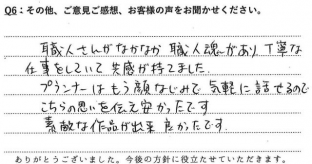 Q6：その他、ご意見ご感想、お客様の声をお聞かせください。
職人さんがなかなか 職人魂があり 丁寧な
仕事をしていて 共感が持てました.
プランナーは もう顔なじみで 気軽に 話せるので
こちらの思いを伝え安かったです
素敵な作品が出来 良かったです.
ありがとうございました。今後の方針に役立たせていただきます。